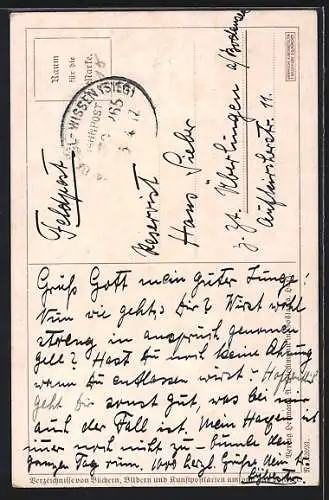 Raum
für die
Marke.
WISSEN (SIEG)
BAHNPOST
Feldpost
Reservist
Hans
z. Zt. Überlingen a/Bodensee
Aufkircherstr. 11.
Grüß Gott mein guter Junge!
Nun wie geht's Dir? Wirst wohl
streng in anspruch genomen
gell? Hast Du noch keine Ahnung
wann Du entlassen wirst? Hoffentlich
geht Dir sonst gut, was bei mir
auch der Fall ist. Mein Magen ist
immer noch nicht zu bumle den
ganzen Tag rum. Herzl. Grüße
Verzeichnisse von Büchern, Bildern und Kunstpostkarten